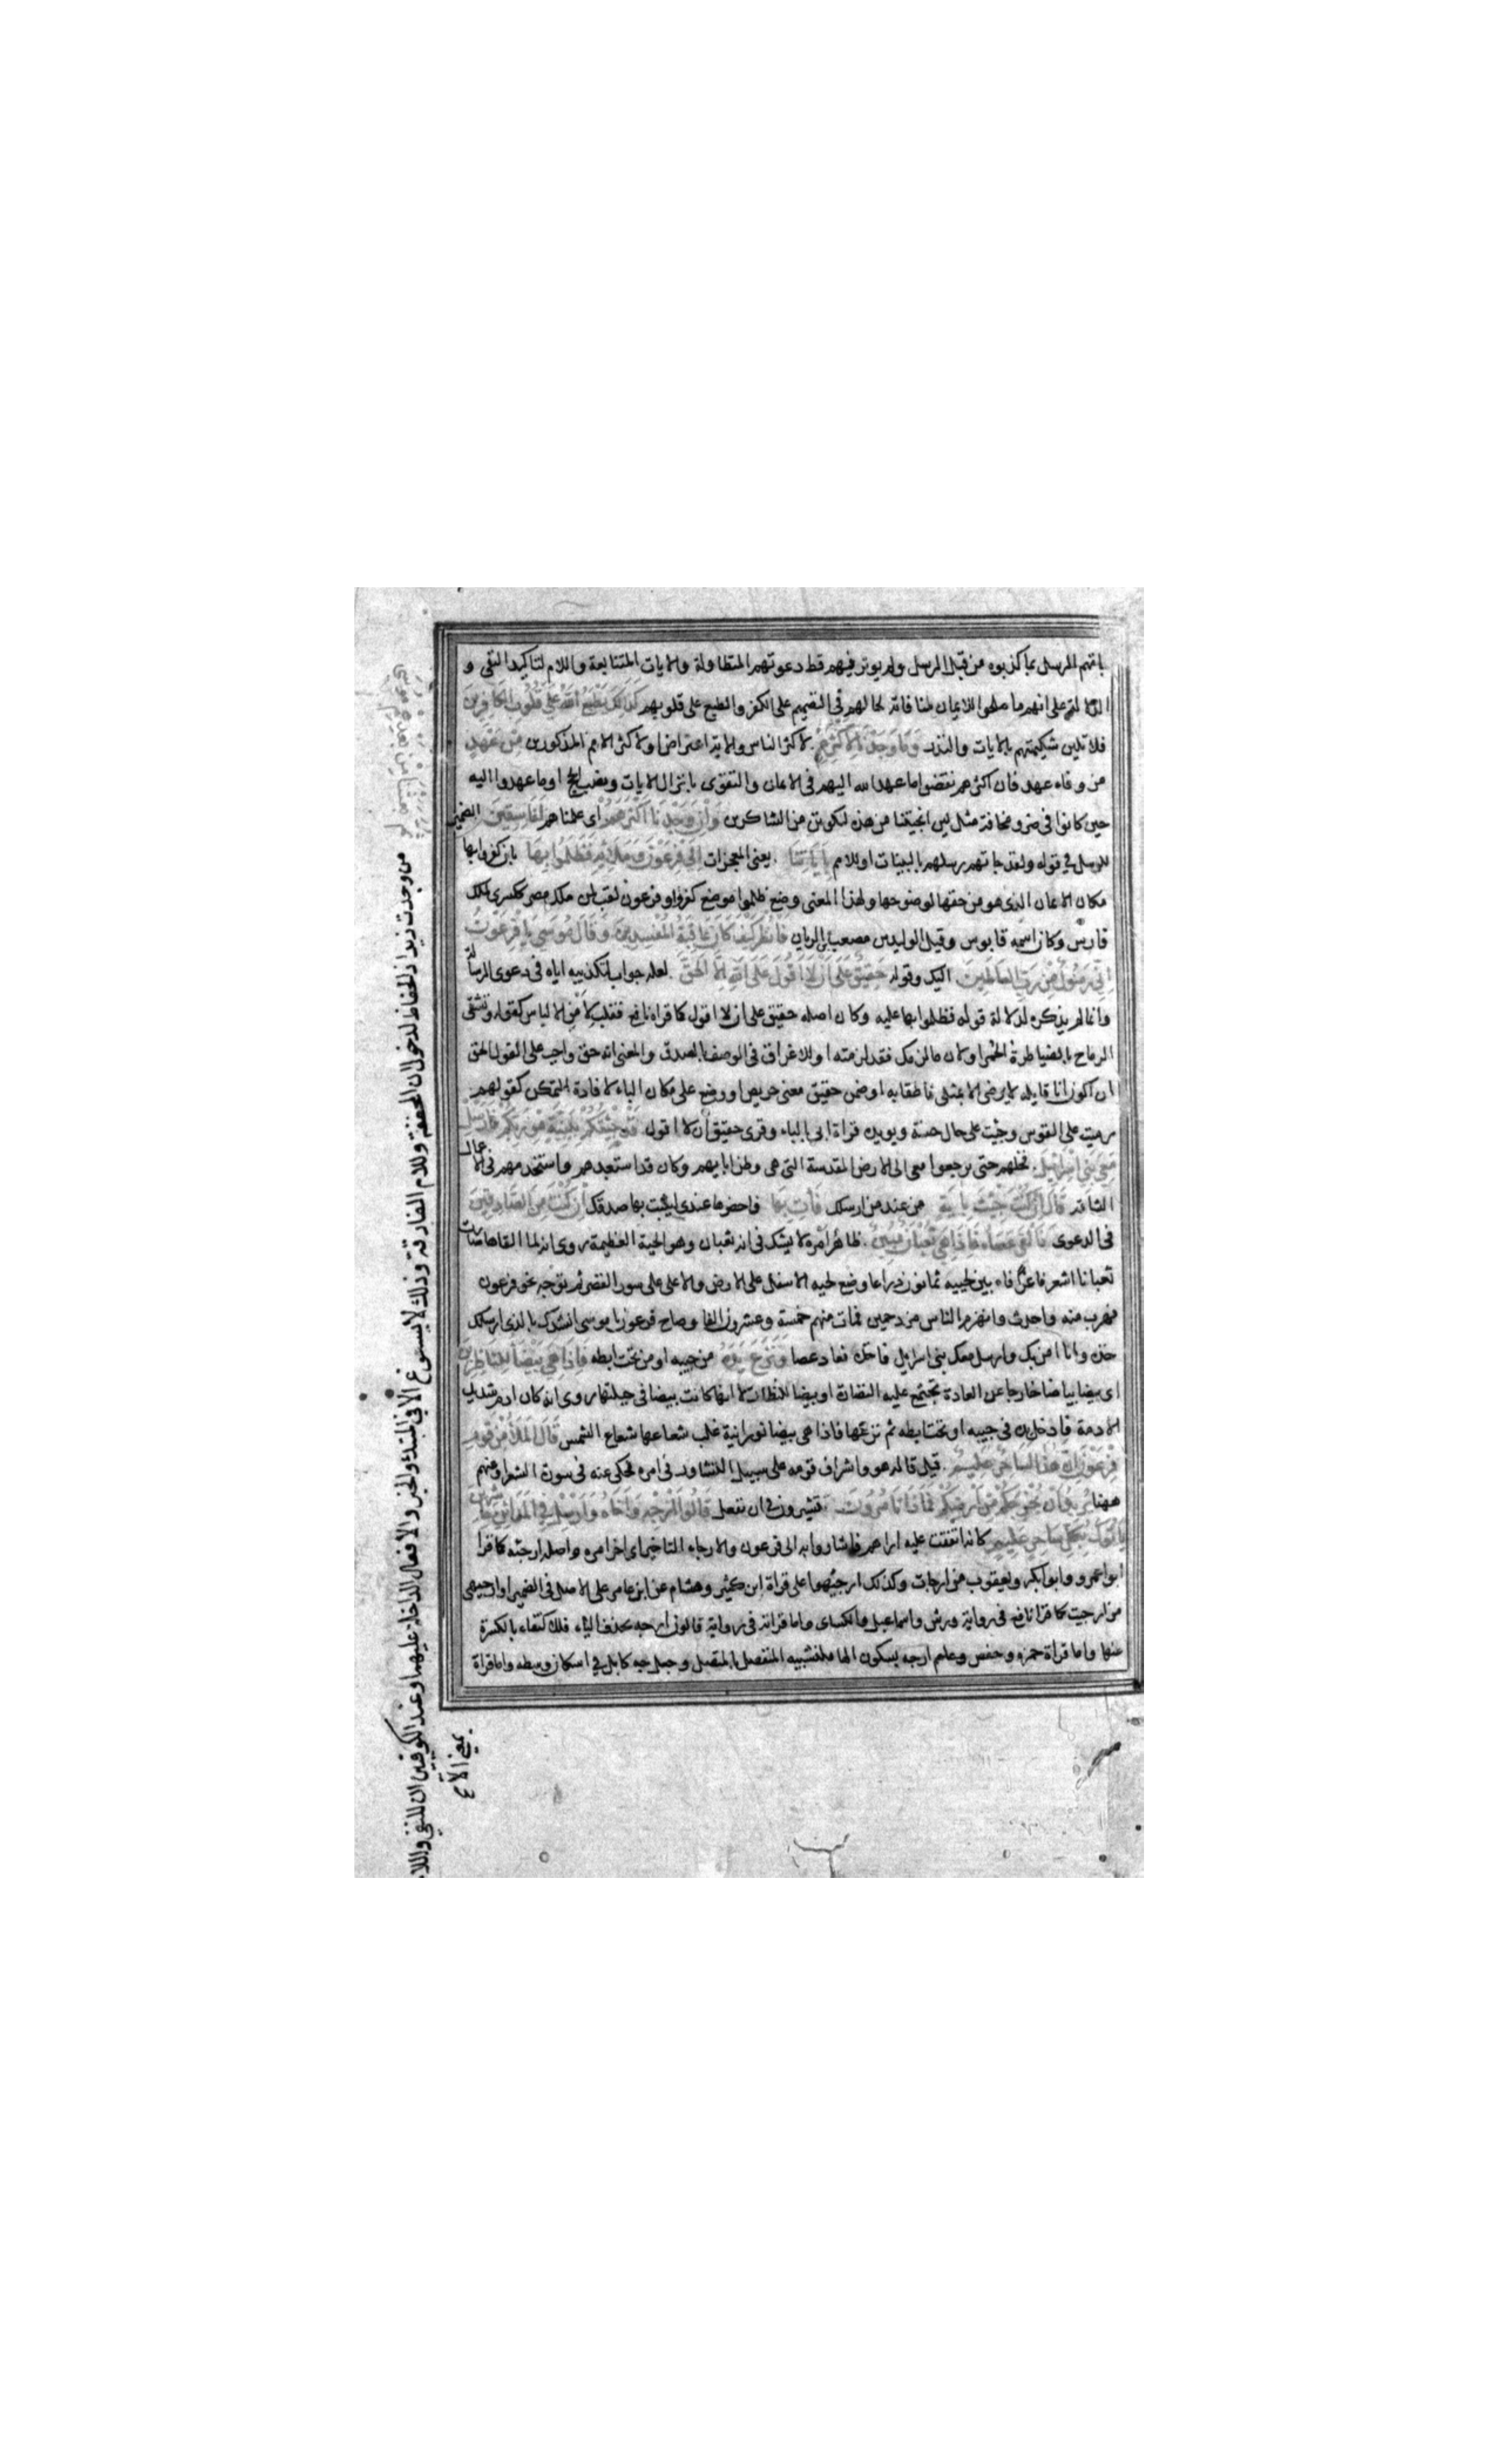 جاءتهم الرسل بما كذبوه من قبل الرسل ولم يوثر فيهم قط دعوتهم المتطاولة والايات المتتابعة واللام لتاكيد النفى و
الدلالة على انهم ما صلحوا للايمان لمنافاته لحالهم فى التصميم على الكفر والطبع على قلوبهم كذلك يطبع الله على قلوب الكافرين
فلا تلين شكيمتهم بالايات والنذر وما وجدنا لاكثرهم لاكثر الناس والاية اعتراض او لاكثر الامم المذكورين من عهد
من وفاء عهد فان اكثرهم نقضوا ما عهد الله اليهم فى الايمان والتقوى بانزال الايات ونصب الحجج او ما عهدوا اليه
حين كانوا فى ضر ومخافة مثل لين انجيتنا من هذه لنكونن من الشاكرين وان وجدنا اكثرهم اى علمناهم لفاسقين الضمير
للرسل فى قوله ولقد جاتهم رسلهم بالبينات او للامم باياتنا يعنى المعجزات الى فرعون وملائه فظلموا بها بان كفروا بها
مكان الايمان الذى هو من حقها لوضوحها ولهذا المعنى وضع ظلموا موضع كفروا وفرعون لقب لمن ملك مصر ككسرى لملك
فارس وكان اسمه قابوس وقيل الوليد بن مصعب بن الريان فانظر كيف كان عاقبة المفسدين وقال موسى يا فرعون
انى رسول من رب العالمين اليك وقوله حقيق على ان لا اقول على الله الا الحق لعله جواب لتكذيبه اياه فى دعوى الرسالة
وانما لم يذكره لدلالة قوله فظلموا بها عليه وكان اصله حقيق على ان لا اقول كما قراه نافع فقلب لامن الالباس كقوله وتشقى
الرماح بالضياطرة الحمر او لان ما لزمك فقد لزمته او للاغراق فى الوصف بالصدق والمعنى انه حق واجب على القول الحق
ان اكون انا قايله لا يرضى الا بمثلى ناطقا به او ضمن حقيق معنى حريص او وضع على مكان الباء لافادة التمكن كقولهم
رميت على القوس وجيت على حال حسنة ويويده قراة ابى بالباء وقرى حقيق ان لا اقول قد جئتكم ببينة من ربكم فارسل
معى بنى اسرايل فخلهم حتى يرجعوا معى الى الارض المقدسة التى هى وطن ابايهم وكان قد استعبدهم واستخدمهم فى الاعمال
الشاقه قال ان كنت جئت باية من عند من ارسلك فأت بها فاحضرها عندى ليثبت بها صدقك ان كنت من الصادقين
فى الدعوى فالقى عصاه فاذا هى ثعبان مبين ظاهر امره لا يشك فى انه ثعبان وهو الحية العظيمة روى انه لما القاها صارت
ثعبانا اشعر فاغرا فاه بين لحييه ثمانون ذراعا وضع لحيه الاسفل على الارض والاعلى على سور القصر ثم توجه نحو فرعون
فهرب منه واحدث وانهزم الناس مزدحمين فمات منهم خمسة وعشرون الفا وصاح فرعون يا موسى انشدك بالذى ارسلك
خذه وانا اومن بك وارسل معك بنى اسرايل فاخذه فعاد عصا ونزع يده من جيبه او من تحت ابطه فاذا هى بيضا للناظرين
اى بيضا بياضا خارجا عن العادة تجتمع عليه النظارة او بيضا للنظارة لا انها كانت بيضا فى جبلتها روى انه كان ادم شديد
الادمة فادخل يده فى جيبه او تحت ابطه ثم نزعها فاذا هى بيضا نورانية غلب شعاعها شعاع الشمس قال الملا من قوم
فرعون ان هذا لساحر عليم قيل قاله هو واشراف قومه على سبيل التشاور فى امره فحكى عنه فى سورة الشعرا وعنهم
ههنا يريد ان يخرجكم من ارضكم فما ذا تامرون تشيرون فى ان نفعل قالوا ارجه واخاه وارسل فى المداين حاشرين
ياتوك بكل ساحر عليم كانه اتفقت عليه اراهم فاشاروا به الى فرعون والارجاء التاخير اى اخر امره واصله ارجئه كما قرا
ابو عمرو وابو بكر ويعقوب من ارجات وكذلك ارجئهوا على قراة ابن كثير وهشام عن ابن عامر على الاصل فى الضمير او ارجيهى
من ارجيت كما قرا نافع فى رواية ورش واسماعيل والكساى واما قراته فى رواية قالون ارجه بحذف الياء فللاكتفاء بالكسرة
عنها واما قراة حمزه وحفص وعاصم ارجه بسكون الها فلتشبيه المنفصل بالمتصل وجعل جه كابل فى اسكان وسطه واما قراة
من وجدت زيدا ذا الحفاظ لدخول ان المخففة واللام الفارقة وذلك لا يسوغ الا فى المبتدء والخبر والافعال الداخلة عليهما وعند الكوفيين ان للنفى واللام
بمعنى الا ع